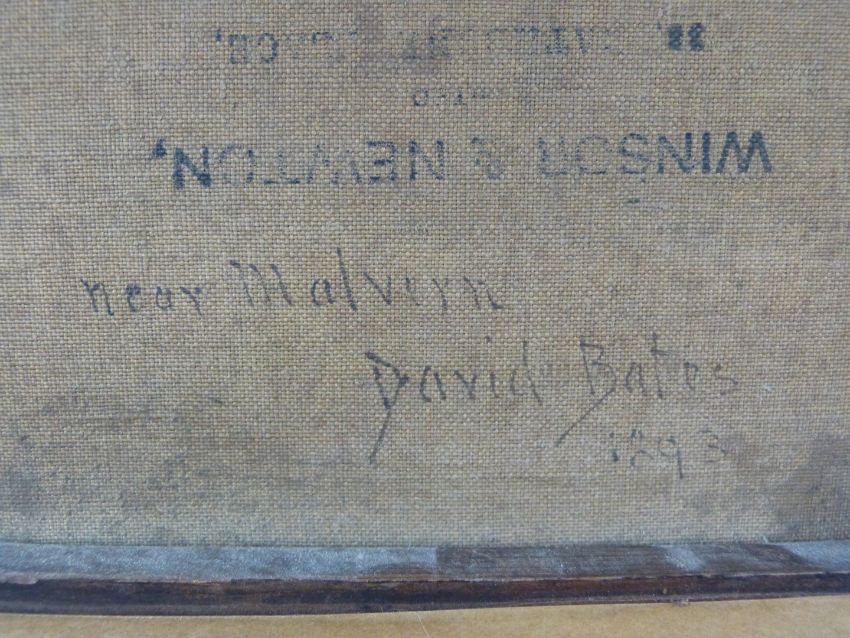 WINSOR & NEWTON,
LIMITED
38,
near Malvern
David Bates
1893